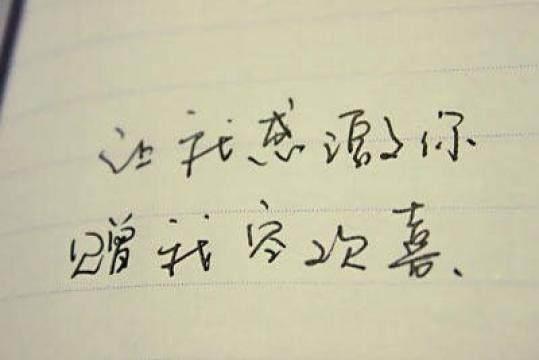 让我感谢你
赠我空欢喜、